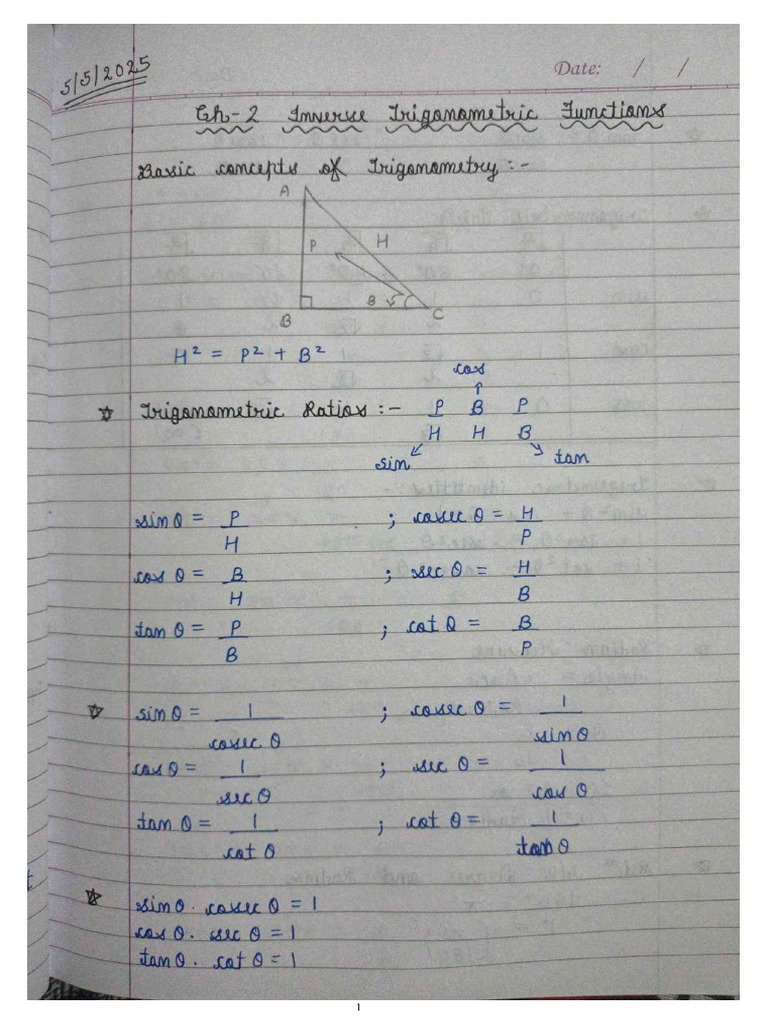 5/5/2025
Date: / /
Ch-2 Inverse Trigonometric Functions
Basic concepts of Trigonometry :-
A
P H
B
B C
H² = P² + B²
cos
☆ Trigonometric Ratios :- P/H B/H P/B
sin tan
sinθ = P/H ; cosec θ = H/P
cos θ = B/H ; sec θ = H/B
tan θ = P/B ; cot θ = B/P
☆ sinθ = 1/cosec θ ; cosec θ = 1/sin θ
cos θ = 1/sec θ ; sec θ = 1/cos θ
tan θ = 1/cot θ ; cot θ = 1/tan θ
☆ sin θ . cosec θ = 1
cos θ . sec θ = 1
tan θ . cot θ = 1
1